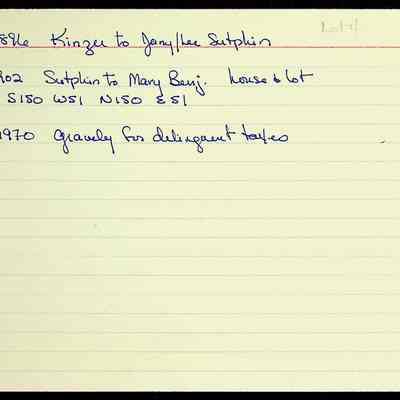 Lot
896 Kinzer to Jany/Lee Sutphin
902 Sutphin to Mary Benj. house & lot
S150 W51 N150 E51
1970 Gravely for delinquent taxes